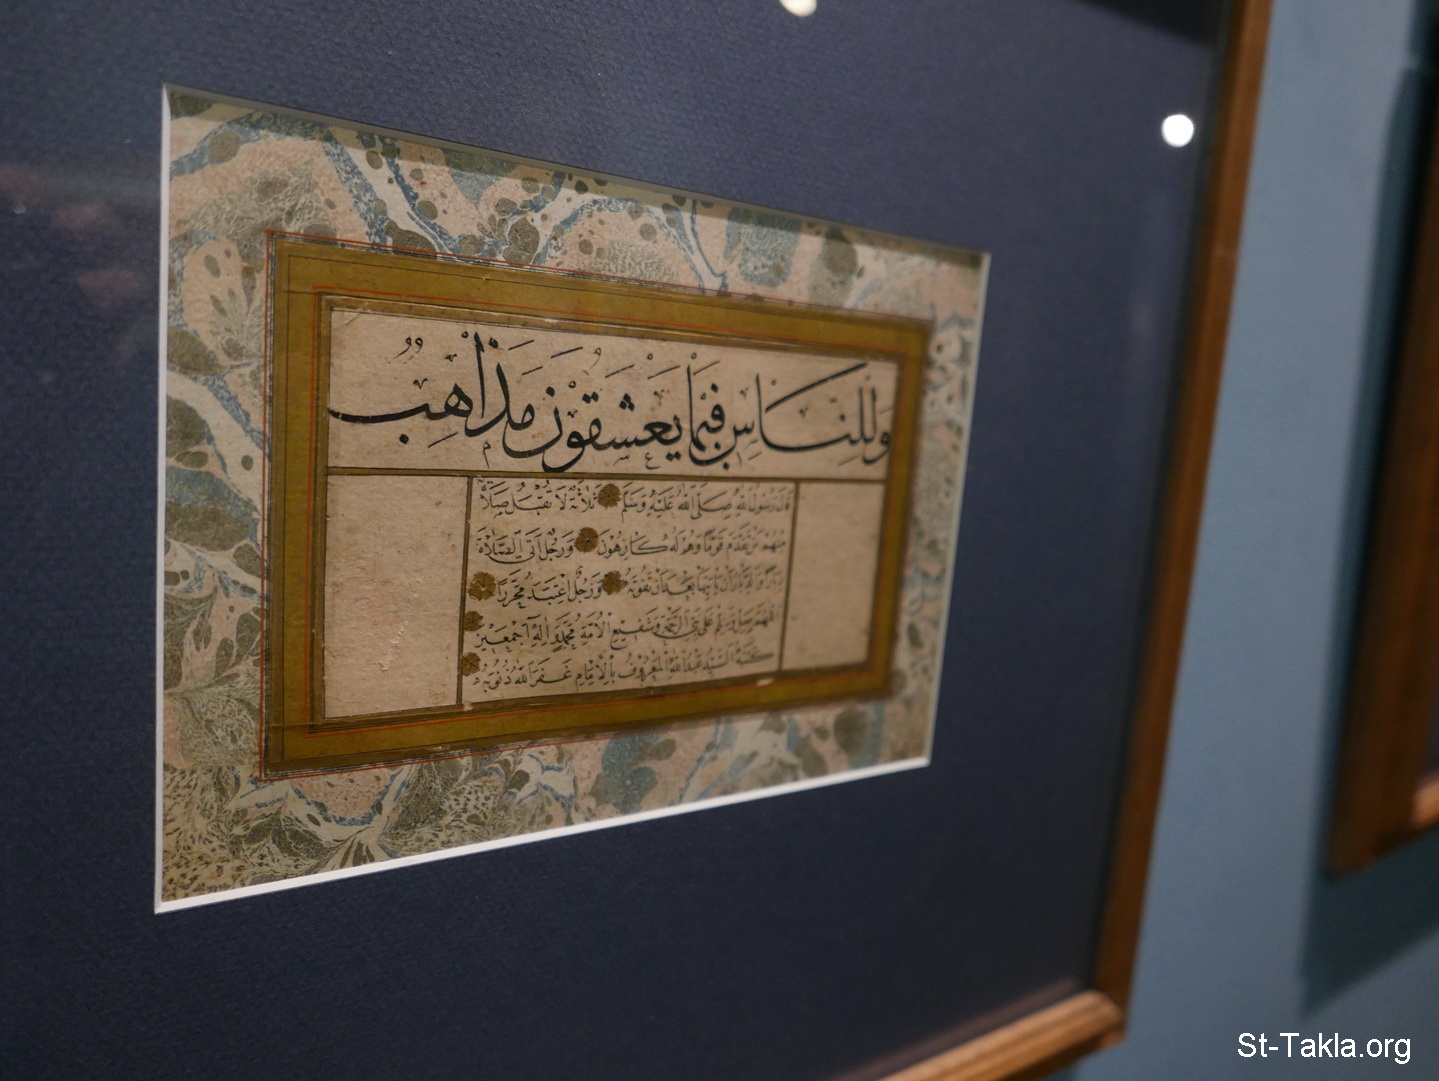 وَلِلنَّاسِ فِيمَا يَعْشَقُونَ مَذَاهِبُ
قَالَ رَسُولُ اللهِ صَلَّى اللهُ عَلَيْهِ وَسَلَّمَ ثَلَاثَةٌ لَا تُقْبَلُ صَلَاةُ
مِنْهُمْ مَنْ تَقَدَّمَ قَوْمًا وَهُمْ لَهُ كَارِهُونَ وَرَجُلٌ أَتَى الصَّلَاةَ
دِبَارًا وَالدِّبَارُ أَنْ يَأْتِيَهَا بَعْدَ أَنْ تَفُوتَهُ وَرَجُلٌ اعْتَبَدَ مُحَرَّرًا
اللَّهُمَّ صَلِّ وَسَلِّمْ عَلَى نَبِيِّ الرَّحْمَةِ وَشَفِيعِ الْأُمَّةِ مُحَمَّدٍ وَآلِهِ أَجْمَعِينَ
كَتَبَهُ السَّيِّدُ عَبْدُ اللهِ الْمَعْرُوفُ بِالْإِمَامِ غَفَرَ اللهُ ذُنُوبَهُ
St-Takla.org